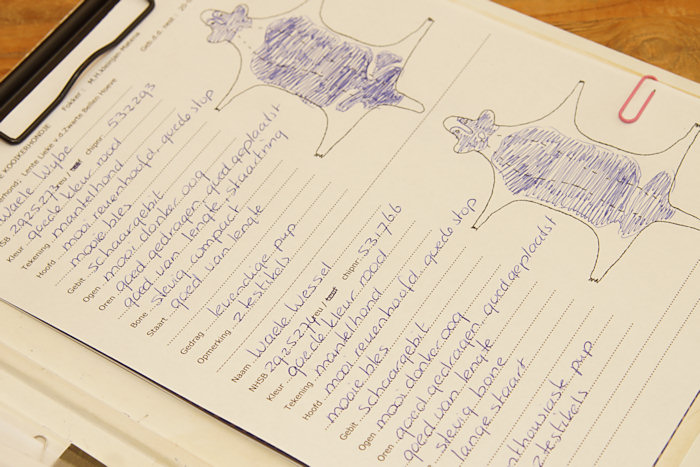 KOOIKERHONDJE Fokker: M.H.Kleinjan-Matena
Lente Lieke v.d.Zwarte Bellen Hoeve Geb.d.d. nest: 20-
Waele Wybe
NHSB 2925273 reu chipnr: 532293
Kleur goede kleur rood
Tekening mantelhond
Hoofd mooi reuenhoofd, goede stop
mooie bles
Gebit schaargebit
Ogen mooi donker oog
Oren goed gedragen, goed geplaatst
goed van lengte, staartring
Bone stevig compact
Staart goed van lengte
Gedrag levendige pup
Opmerking 2 testikels
Naam Waele Wessel
NHSB 2925274 reu chipnr: 531766
Kleur goede kleur rood
Tekening mantelhond
Hoofd mooi reuenhoofd, goede stop
mooie bles
Gebit schaargebit
Ogen mooi donker oog
Oren goed gedragen, goed geplaatst
goed van lengte
stevig bone
lange staart
enthousiaste pup
2 testikels